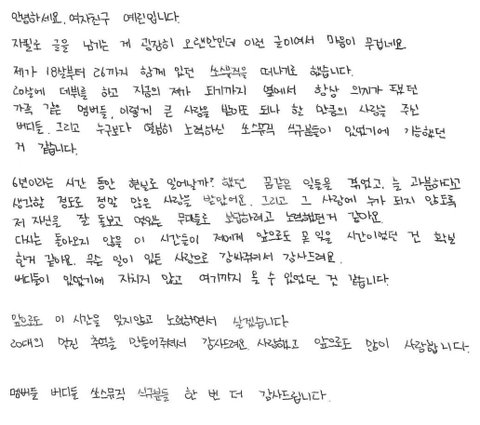 안녕하세요. 여자친구 예린입니다.
자필로 글을 남기는 게 굉장히 오랜만인데 이런 글이여서 마음이 무겁네요.
제가 18살부터 26까지 함께 있던 쏘스뮤직을 떠나기로 했습니다.
20살에 데뷔를 하고 지금의 제가 되기까지 옆에서 항상 의지가 돼보던
가족 같은 멤버들, 이렇게 큰 사랑을 받아도 되나 할 만큼의 사랑을 주신
버디들. 그리고 누구보다 열심히 노력하신 쏘스뮤직 식구분들이 있었기에 가능했던
거 같습니다.
6년이라는 시간 동안 현실로 일어날까? 했던 꿈같은 일들을 겪었고, 늘 과분하다고
생각할 정도로 정말 많은 사랑을 받았어요. 그리고 그 사랑에 누가 되지 않도록
저 자신을 잘 돌보고 멋있는 무대들로 보답하려고 노력했던거 같아요.
다시는 돌아오지 않을 이 시간들이 저에게 앞으로도 못 잊을 시간이었던 건 확실
한거 같아요. 무슨 일이 있든 사랑으로 감싸줘서 감사드려요.
버디들이 있었기에 지치지 않고 여기까지 올 수 있었던 것 같습니다.
앞으로도 이 시간을 잊지않고 노력하면서 살겠습니다.
20대의 멋진 추억을 만들어주셔서 감사드려요. 사랑했고 앞으로도 많이 사랑합니다.
멤버들 버디들 쏘스뮤직 식구분들 한 번 더 감사드립니다.